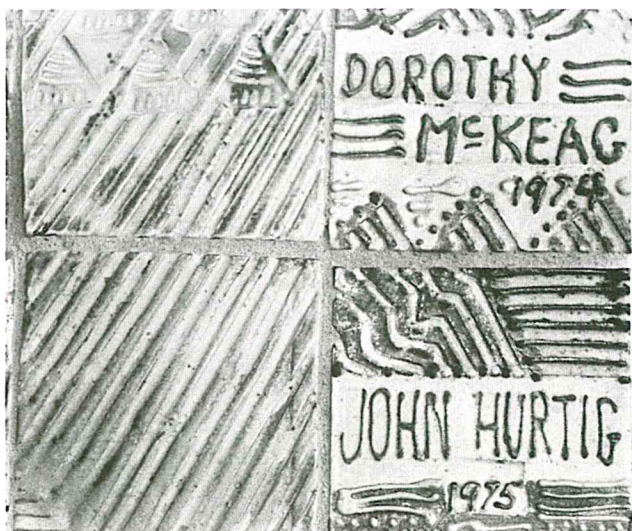 DOROTHY
McKEAG
1974
JOHN HURTIG
1975